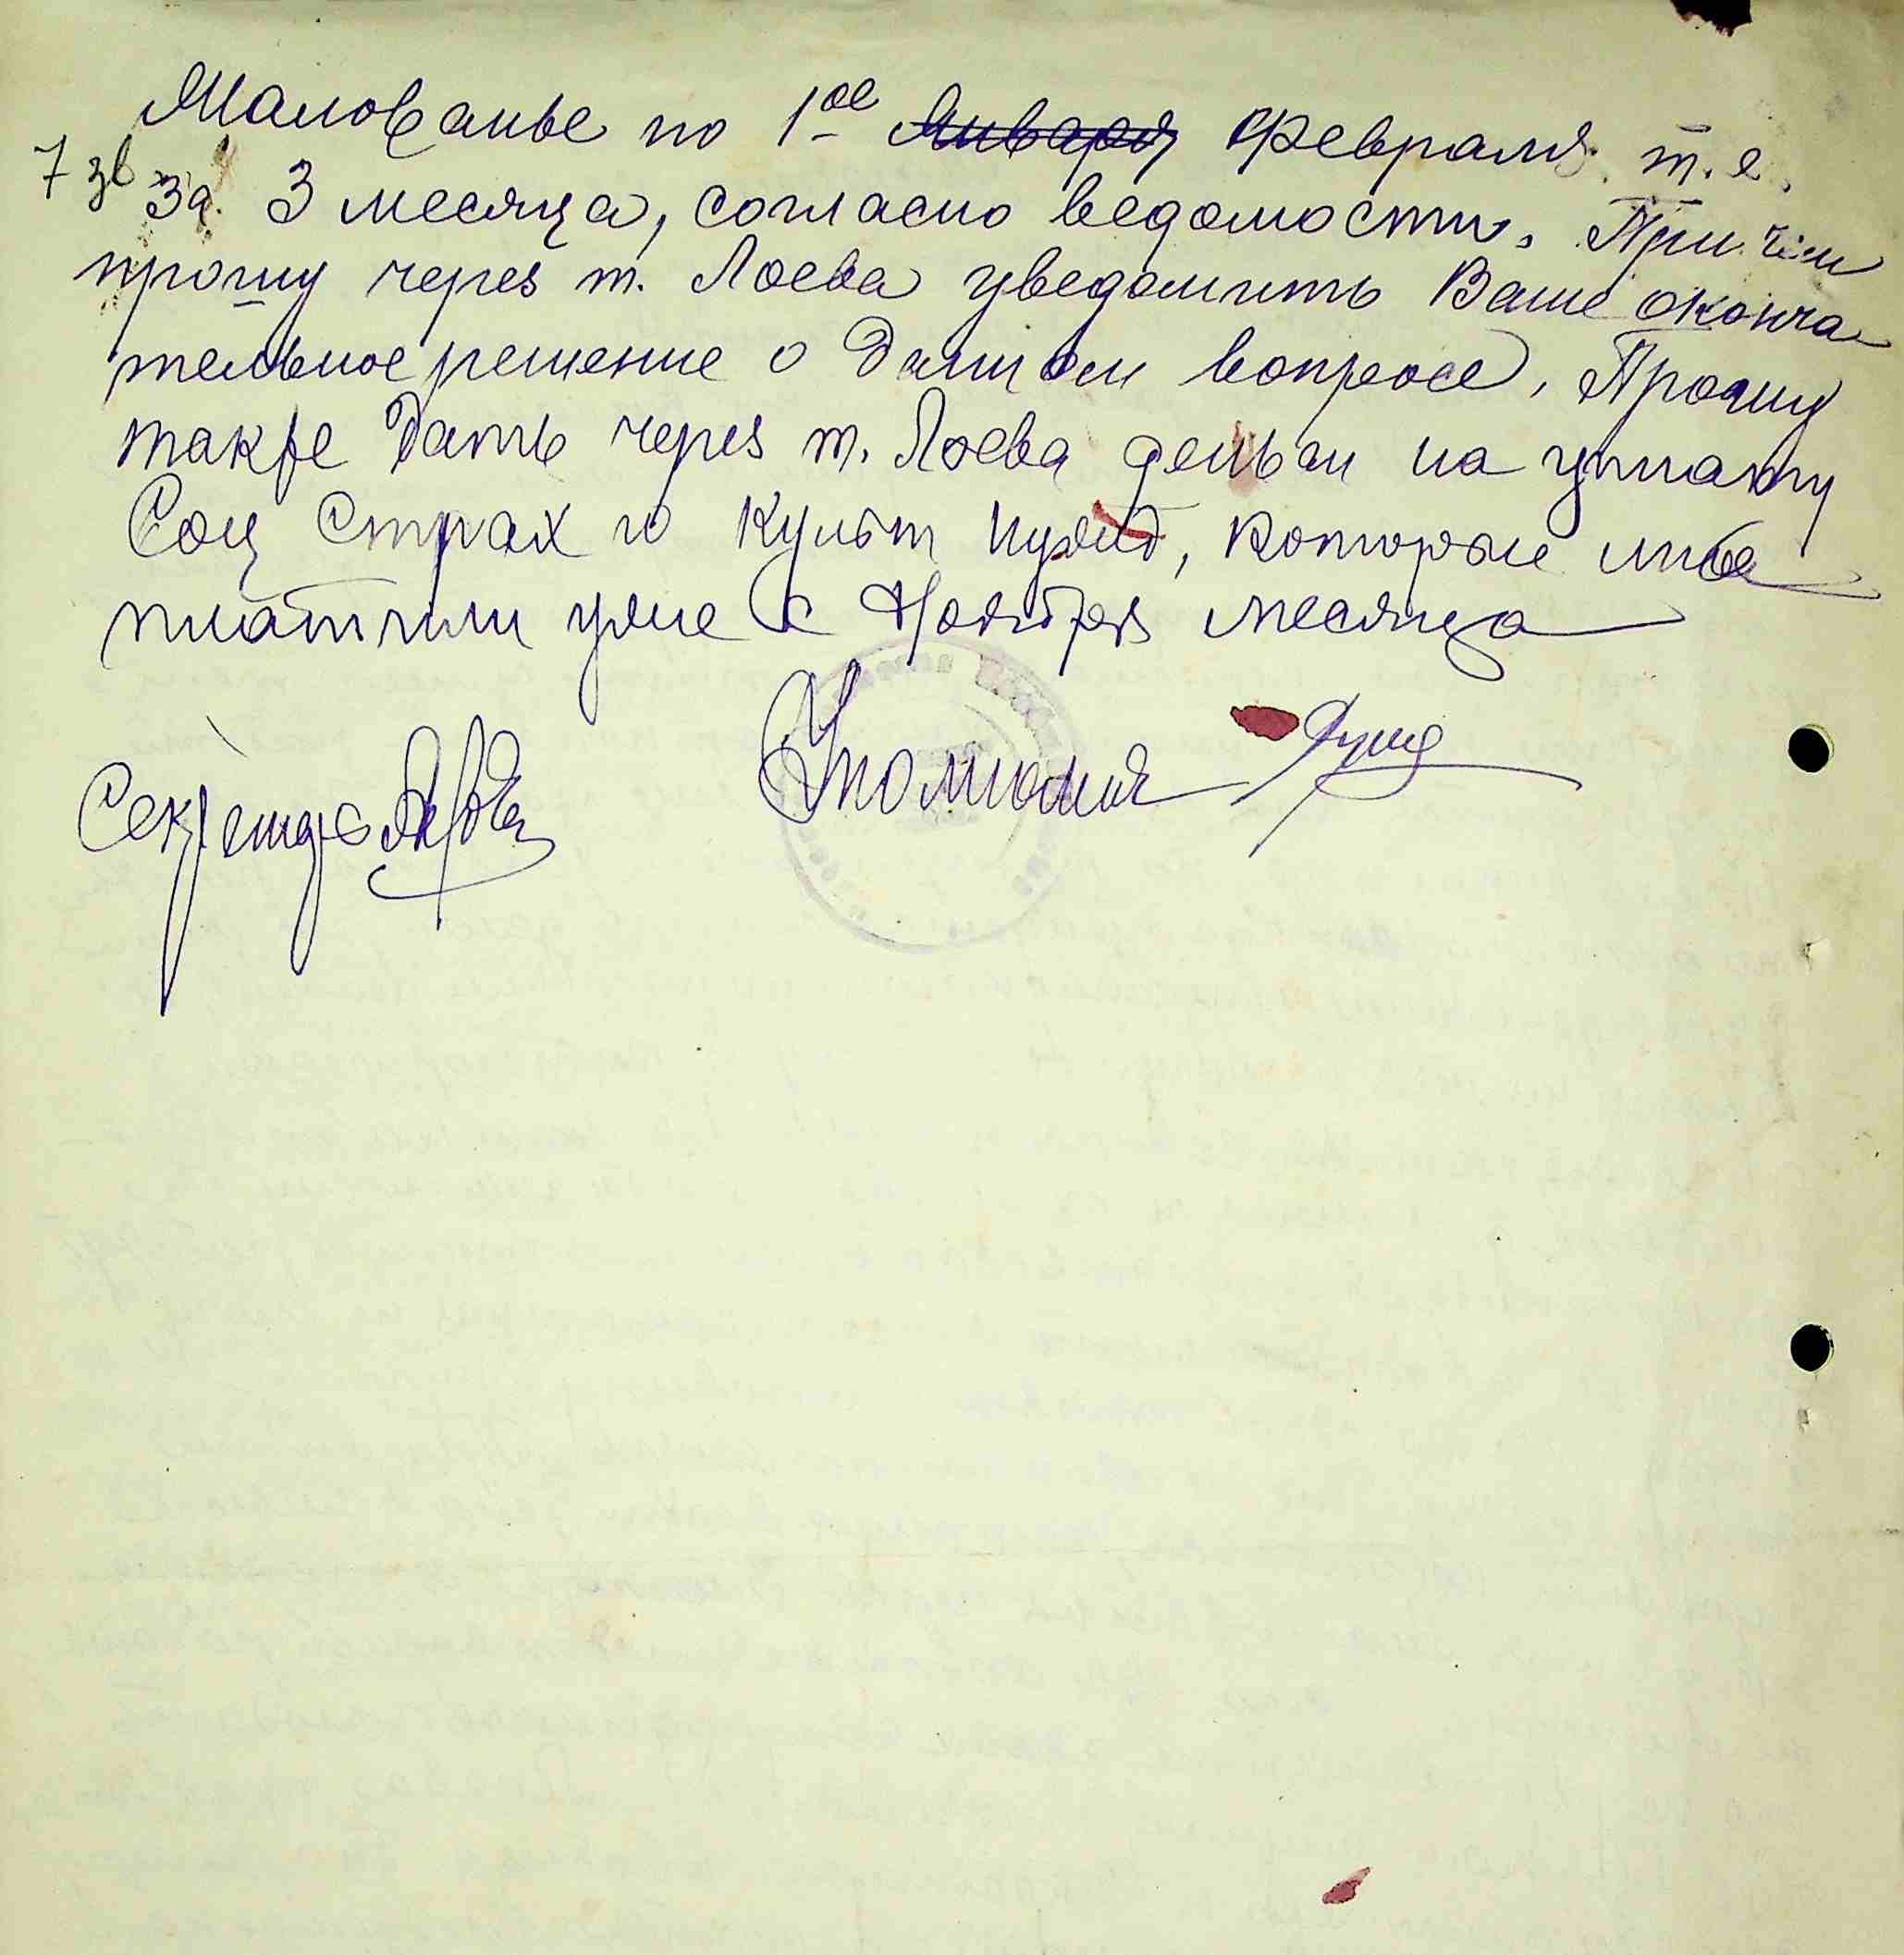 Жалованье по 1ое Января Февраля т.е.
за 3 месяца, согласно ведомости. При чем
прошу через т. Лоева уведомить Ваше оконча
тельное решение о данном вопросе, Прошу
также дать через т. Лоева деньги на уплату
Соц Страх и культ нужд, которые мы не
платили уже с Ноября месяца
Уполномоч
Секретарь